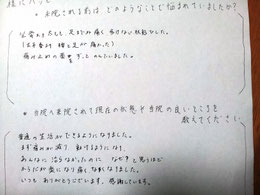 様にパっ
・来院される前は、どのようなことで悩まれていましたか？
(右手首が 腰と足が痛んだ)
痛み止めの薬をずっとのんでいました。
・当院へ来院されて現在の状態や当院の良いところを
教えてください。
普通の生活ができるようになりました。
まず痛みが減り 動けるようになり、
あんなに治らなかったのに なぜ？と思うほど
からだが楽になり痛くなくなりました。
いつもありがとうございます。感謝しています。